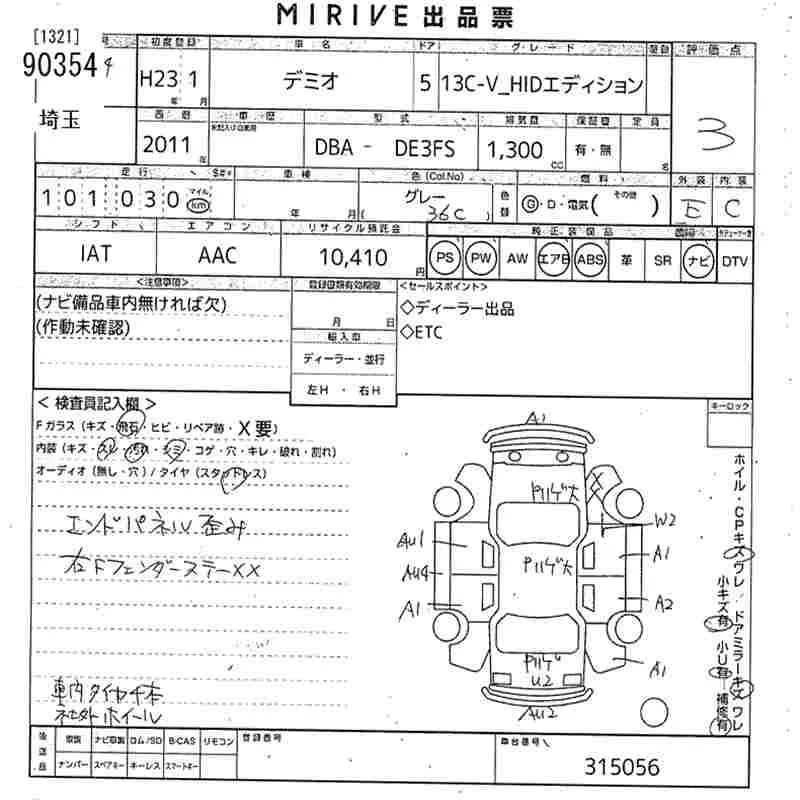 MIRIVE 出品票
[1321]
90354
埼玉
初度登録 車名 ドア グレード 評価点
H23 1 デミオ 5 13C-V_HIDエディション
年 月
3
西暦 車歴 型式 排気量 保証書 定員
2011 年 DBA - DE3FS 1,300 CC 有・無 名
走行 車検 色(Col.No) 燃料 外装 内装
101030 マイル km 年 月 グレー (36C) 色替 G・D・電気( その他 ) E C
シフト エアコン リサイクル預託金 純正装備品
IAT AAC 10,410 円 PS PW AW エアB ABS 革 SR ナビ DTV
<注意事項> 登録書類有効期限 <セールスポイント>
(ナビ備品車内無ければ欠) ◇ディーラー出品
(作動未確認) 月 日 ◇ETC
輸入車
ディーラー・並行
左H ・ 右H
< 検査員記入欄 > キーロック
Fガラス (キズ・飛石・ヒビ・リペア跡・X要)
内装 (キズ・スレ・汚れ・シミ・コゲ・穴・キレ・破れ・割れ)
オーディオ (無し・穴) / タイヤ (スタッドレス)
エンドパネル歪み
右Fフェンダーステーxx
車内タイヤ4本
社外ホイール
A1
Pハゲ大 X
W2
AU1 A1
Pハゲ大
AU4
A1 A2
Pハゲ A1
U2
AU2
ホイル・CPキズワレ / ドアミラーキズワレ
小キズ有 小U有 補修有
後送品 取説 ナビ取説 ロム/SD B-CAS リモコン 登録番号 車台番号
ナンバー スペアキー キーレス スマートキー 315056